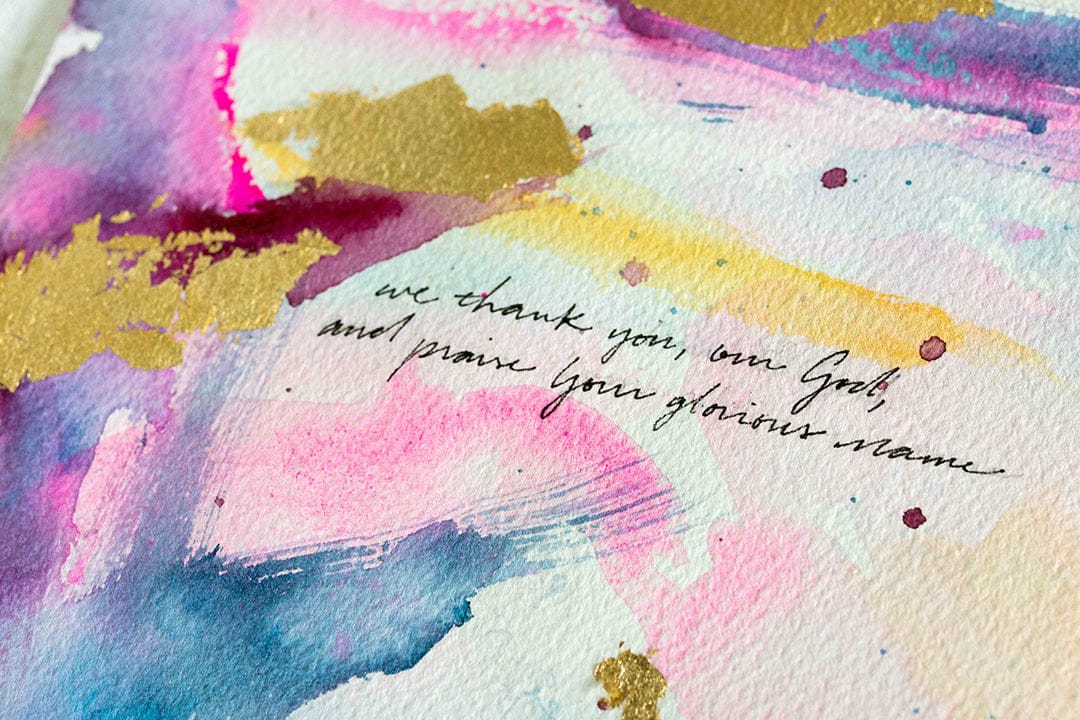 we thank you, our God,
and praise Your glorious name